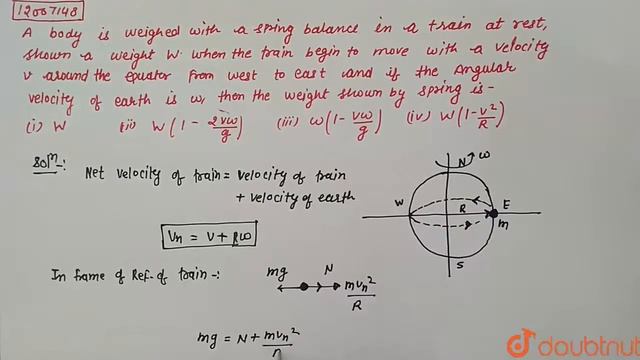 12007148
A body is weighed with a spring balance in a train at rest,
shown a weight W. when the train begin to move with a velocity
v around the equator from west to east and if the Angular
velocity of earth is ω, then the weight shown by spring is-
(i) W (ii) W(1 - 2vω/g) (iii) ω(1 - vω/g) (iv) W(1 - v²/R)
Solⁿ-: Net velocity of train = velocity of train
+ velocity of earth
Vn = V + Rω
In frame of Ref. of train -:
mg N mvn²/R
mg = N + mvn²/
N ω
W R E
m
S
doubtnut